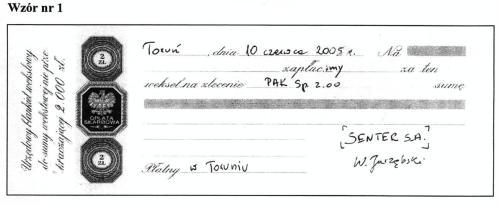 Wzór nr 1
Urzędowy blankiet wekslowy
do sumy wekslowej nie prze-
kraczającej 2 000 zł.
2
ZŁ
OPŁATA
SKARBOWA
2
ZŁ
Toruń, dnia 10 czerwca 2005 r. Na
zapłacimy za ten
weksel na zlecenie PAK Sp z.o.o sumę
[SENTER S.A.]
W. Jarzębski
Płatny w Toruniu